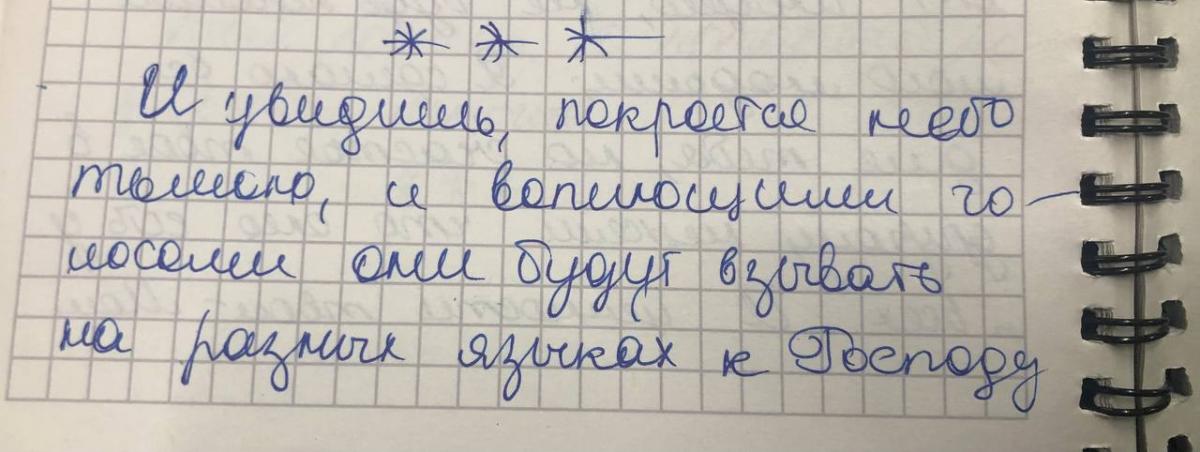 * * *
И увидишь, покроется небо
тьмою, и вопиющими го-
лосами они будут взывать
на разных языках к Господу